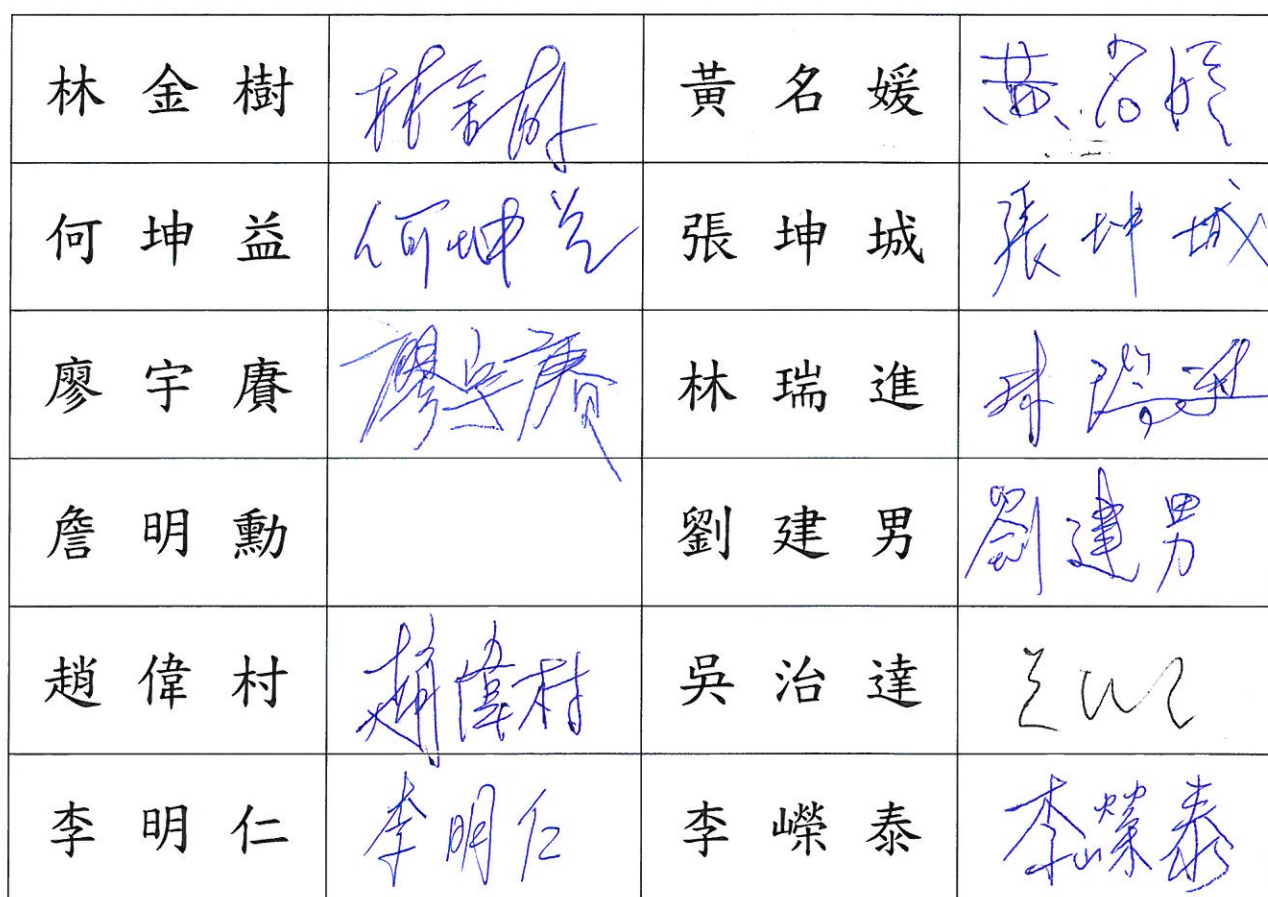 林金樹 林金樹 黃名媛 黃名媛
何坤益 何坤益 張坤城 張坤城
廖宇賡 廖宇賡 林瑞進 林瑞進
詹明勳 劉建男 劉建男
趙偉村 趙偉村 吳治達
李明仁 李明仁 李嶸泰 李嶸泰